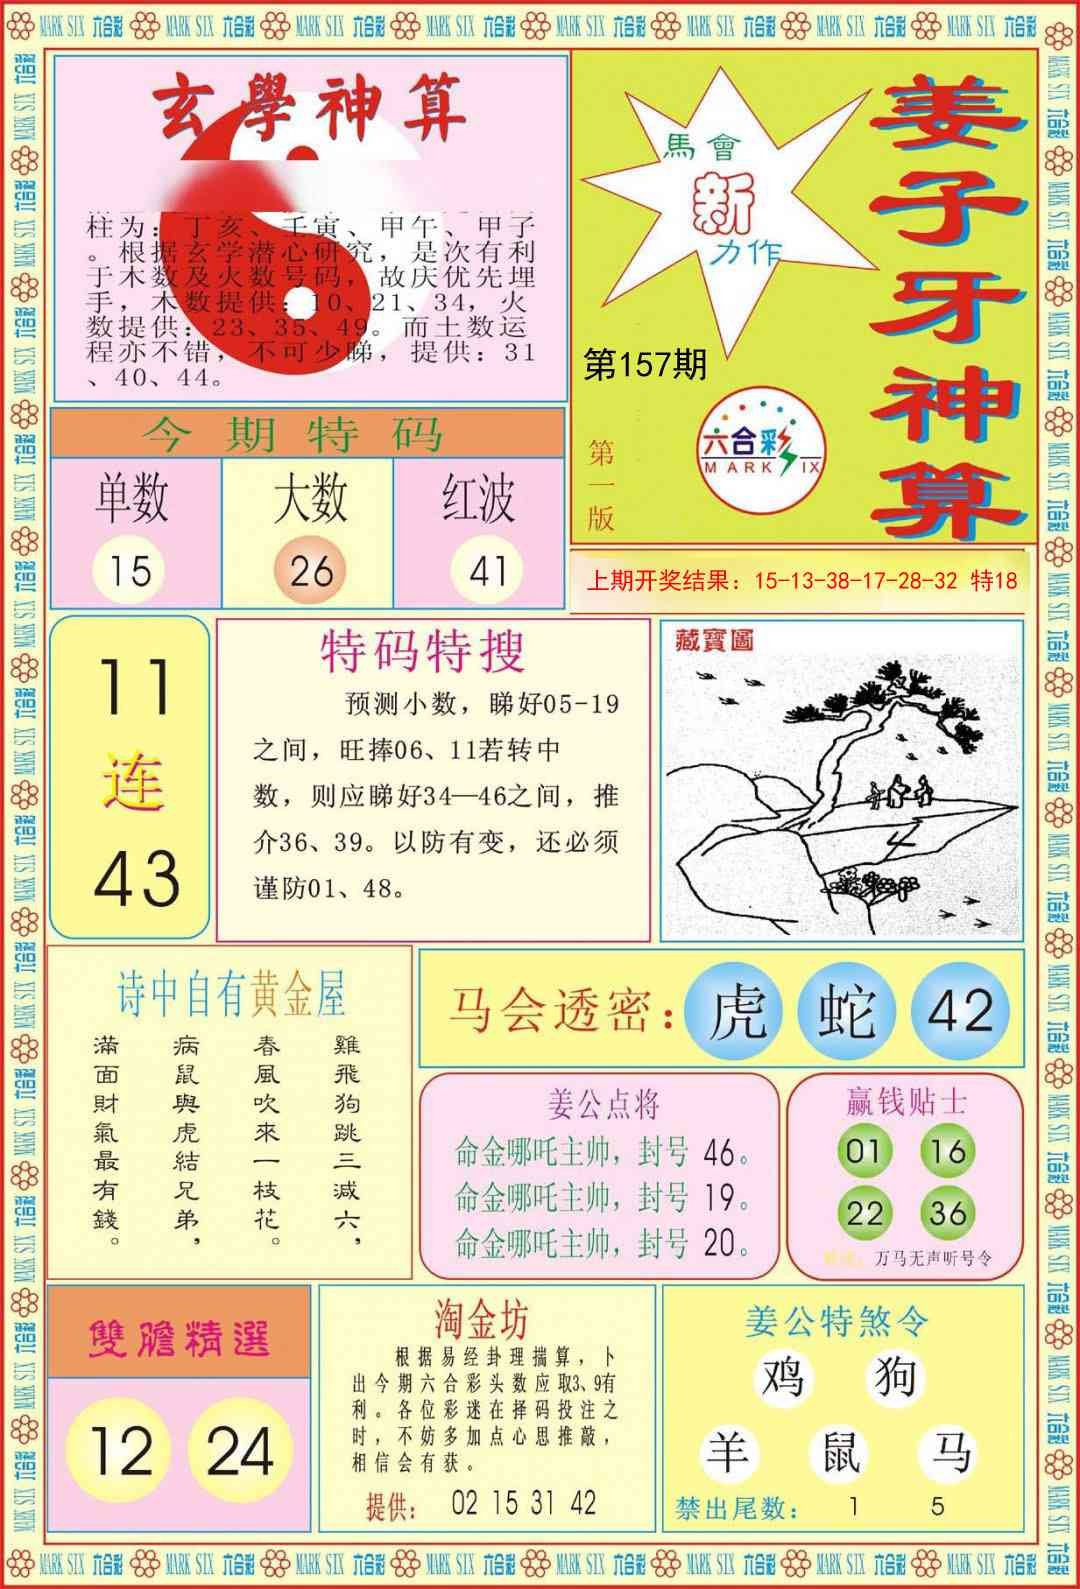 MARK SIX 六合彩
玄學神算
柱为：丁亥、壬寅、甲午、甲子
。根据玄学潜心研究，是次有利
于木数及火数号码，故庆优先埋
手，木数提供：10、21、34，火
数提供：23、35、49。而土数运
程亦不错，不可少睇，提供：31
、40、44。
馬會
新
力作
姜子牙神算
第157期
第一版
六合彩
MARK SIX
今期特码
单数 大数 红波
15 26 41
上期开奖结果：15-13-38-17-28-32 特18
11
连
43
特码特搜
预测小数，睇好05-19
之间，旺捧06、11若转中
数，则应睇好34—46之间，推
介36、39。以防有变，还必须
谨防01、48。
藏寶圖
诗中自有黄金屋
雞飛狗跳三減六，
春風吹來一枝花。
病鼠與虎結兄弟，
滿面財氣最有錢。
马会透密：虎 蛇 42
姜公点将
命金哪吒主帅，封号 46。
命金哪吒主帅，封号 19。
命金哪吒主帅，封号 20。
赢钱贴士
01 16
22 36
万马无声听号令
雙膽精選
12 24
淘金坊
根据易经卦理揣算，卜
出今期六合彩头数应取3、9有
利。各位彩迷在择码投注之
时，不妨多加点心思推敲，
相信会有获。
提供： 02 15 31 42
姜公特煞令
鸡 狗
羊 鼠 马
禁出尾数： 1 5